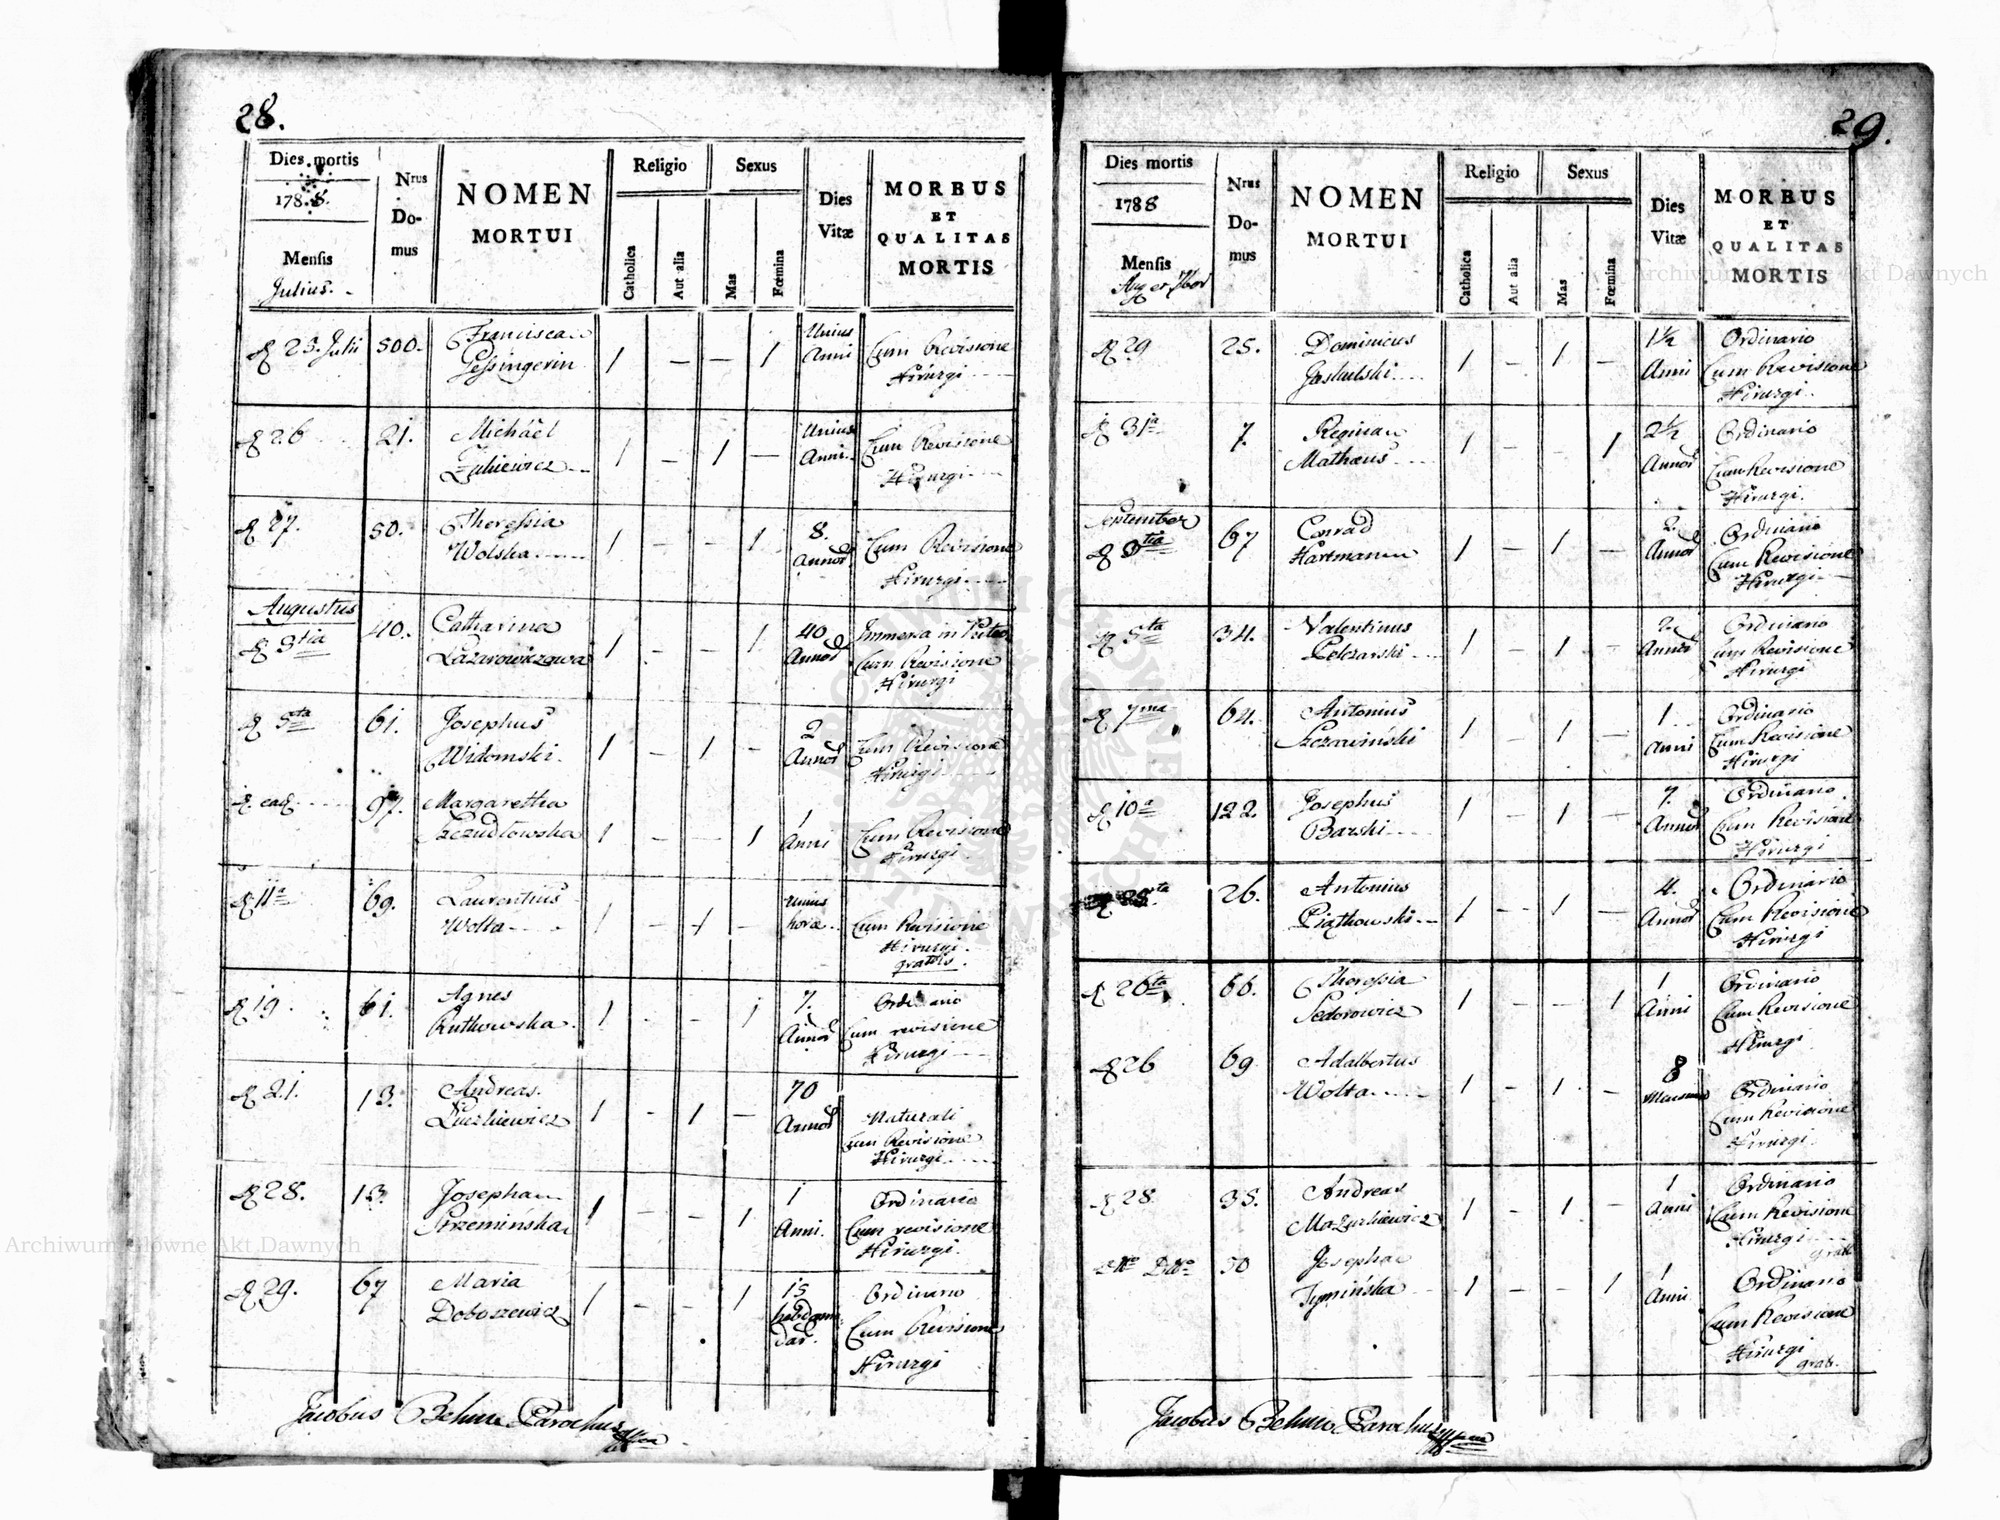 28.
Dies mortis
1788.
Mensis
Julius.
Nrus
Do-
mus
NOMEN
MORTUI
Religio
Catholica
Aut alia
Sexus
Mas
Fœmina
Dies
Vitæ
MORBUS
ET
QUALITAS
MORTIS
23. Julii
500.
Francisca
Pessingerin
1 — — 1
Unius
Anni
Cum Revisione
Hirurgi
26
21.
Michaël
1 — 1 —
Unius
Anni.
Cum Revisione
Hirurgi
27.
50.
Theressia
Wolska
1 — — 1
8.
Annor
Cum Revisione
Hirurgi
Augustus
3tia
40.
Catharina
Lazarowiczowa
1 — — 1
40
Annor
Immersa in
Cum Revisione
Hirurgi
5ta
61.
Josephus
Widomski.
1 — 1 —
2
Annor
Cum Revisione
Hirurgi
ead
97.
Margaretha
Szczudłowska
1 — — 1
1
Anni
Cum Revisione
Hirurgi
11a
69.
Laurentius
Wolta
1 — 1 —
unius
horæ
Cum Revisione
Hirurgi.
gratis.
19.
61.
Agnes
Rutkowska.
1 — — 1
7.
Annor
Ordinario
Cum revisione
Hirurgi
21.
13.
Andreas.
1 — 1 —
70
Annor
Naturali
Cum Revisione
Hirurgi
28.
13.
Josepha
Strzemińska
1 — — 1
1
Anni.
Ordinario
Cum revisione
Hirurgi.
29.
67
Maria
Doboszewicz
1 — — 1
15
hebdoma
dar.
Ordinario
Cum Revisione
Hirurgi
Jacobus Behm Parochus
29.
Dies mortis
1788
Mensis
Aug et 7bor
Nrus
Do-
mus
NOMEN
MORTUI
Religio
Catholica
Aut alia
Sexus
Mas
Fœmina
Dies
Vitæ
MORBUS
ET
QUALITAS
MORTIS
29
25.
Dominicus
Jaskulski
1 — 1 —
1½
Anni
Ordinario
Cum Revisione
Hirurgi.
31a
7.
Regina
Mathæus
1 — — 1
2½
Annor
Ordinario
Cum Revisione
Hirurgi.
September
3tia
67
Conrad
Hartmann
1 — 1 —
2.
Annor
Ordinario
Cum Revisione
Hirurgi
5ta
34.
Valentinus
Pelczarski
1 — 1 —
2.
Annor
Ordinario
Cum Revisione
Hirurgi
7ma
64.
Antonius
Szczawiński
1 — 1 —
1
Anni
Ordinario
Cum Revisione
Hirurgi
10a
122.
Josephus
Barski
1 — 1 —
7.
Annor
Ordinario
Cum Revisione
Hirurgi
26.
Antonius
Piątkowski
1 — 1 —
4.
Annor
Ordinario
Cum Revisione
Hirurgi
26ta
66.
Theressia
Fedorowicz
1 — — 1
1
Anni
Ordinario
Cum Revisione
Hirurgi
26
69
Adalbertus
Wolta
1 — 1 —
8
Mensium
Ordinario
Cum Revisione
Hirurgi
28
35.
Andreas
Mazurkiewicz
1 — 1 —
1
Anni
Ordinario
Cum Revisione
Hirurgi
grat
50
Josepha
Tymińska
1 — — 1
1
Anni
Ordinario
Cum Revisione
Hirurgi
grat.
Jacobus Behm Parochus
Archiwum Główne Akt Dawnych
Archiwum Główne Akt Dawnych
ARCHIWUM GŁÓWNE AKT DAWNYCH